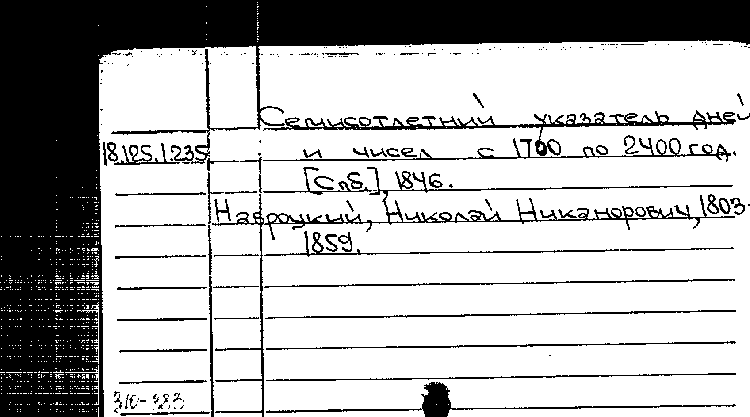 Семисотлетний указатель дней
18.125.1.235 и чисел с 1700 по 2400 год.
[Спб.], 1846.
Навроцкий, Николай Никанорович, 1803-
1859.